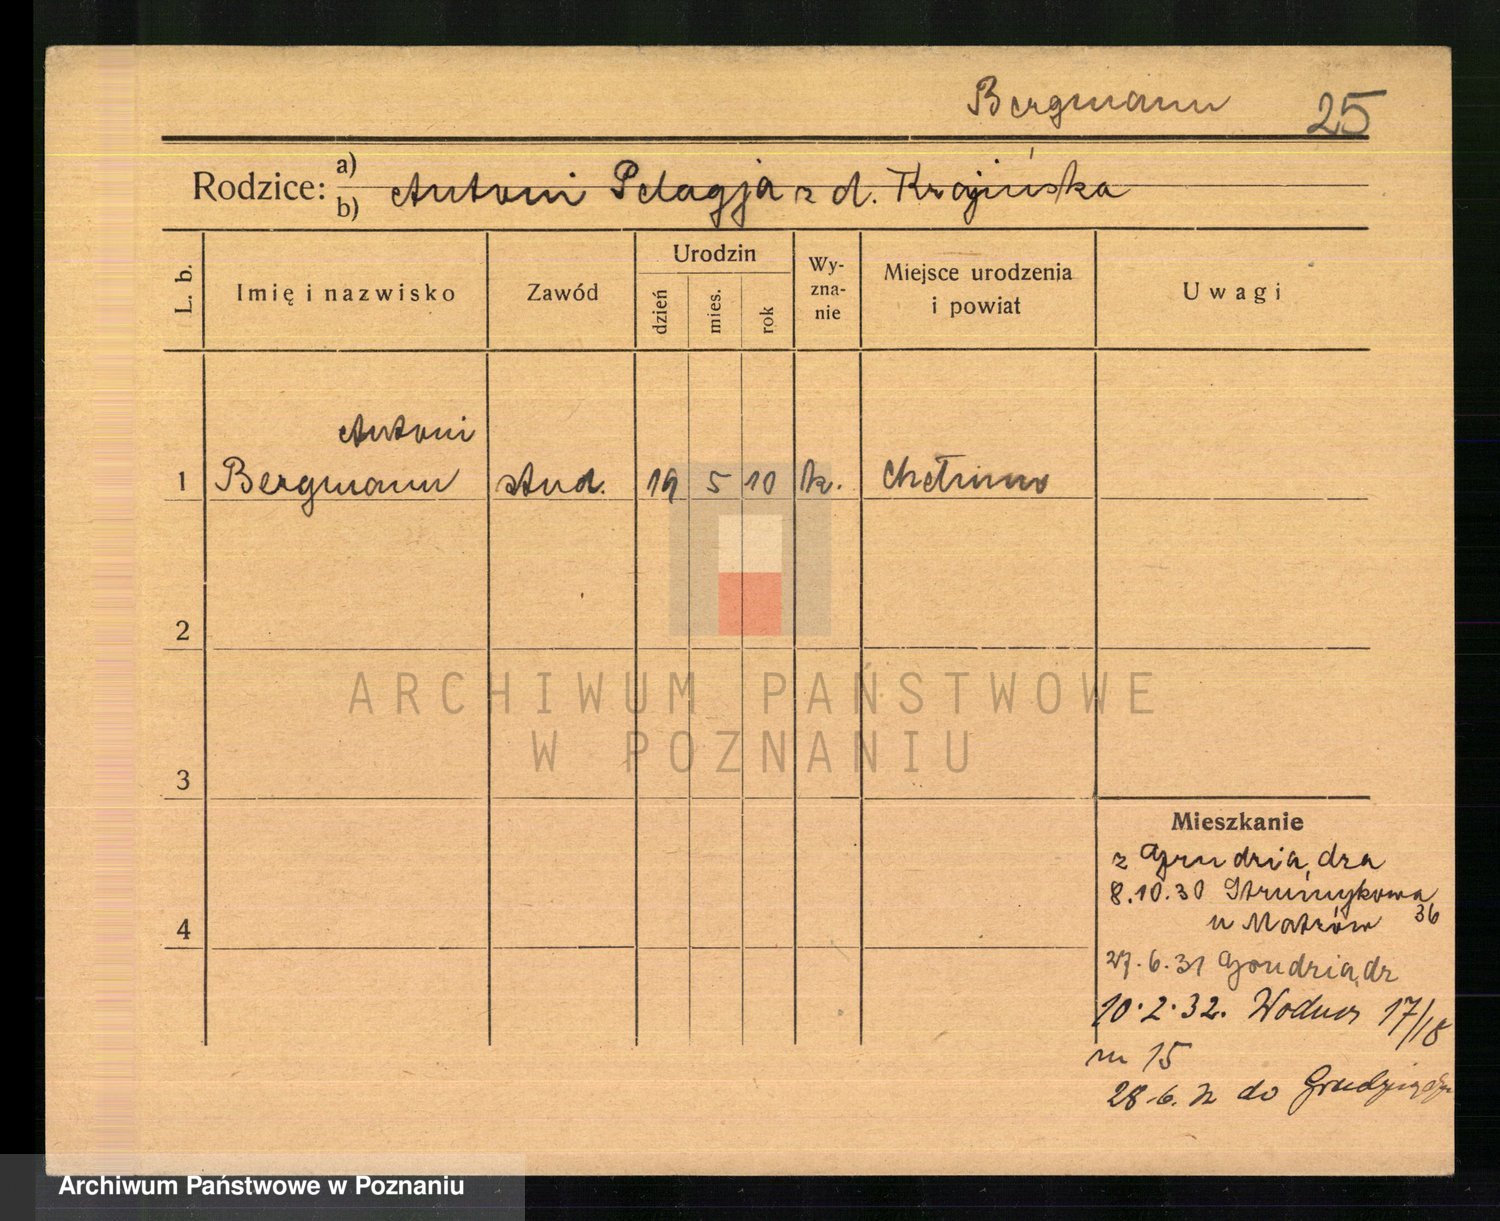 Bergmann 25
Rodzice: a) b) Antoni Pelagja z d. Krajińska
L. b.
Imię i nazwisko
Zawód
Urodzin
dzień
mies.
rok
Wy-
zna-
nie
Miejsce urodzenia
i powiat
Uwagi
Antoni
1 Bergmann stud. 19 5 10 k. Chełmno
2
ARCHIWUM PAŃSTWOWE
W POZNANIU
3
Mieszkanie
z Grudziądza
8.10.30 Strumykowa
36
u
27.6.31 Grudziądz
4
10.2.32. Wodna 17/18
m 15
28.6. do
Archiwum Państwowe w Poznaniu